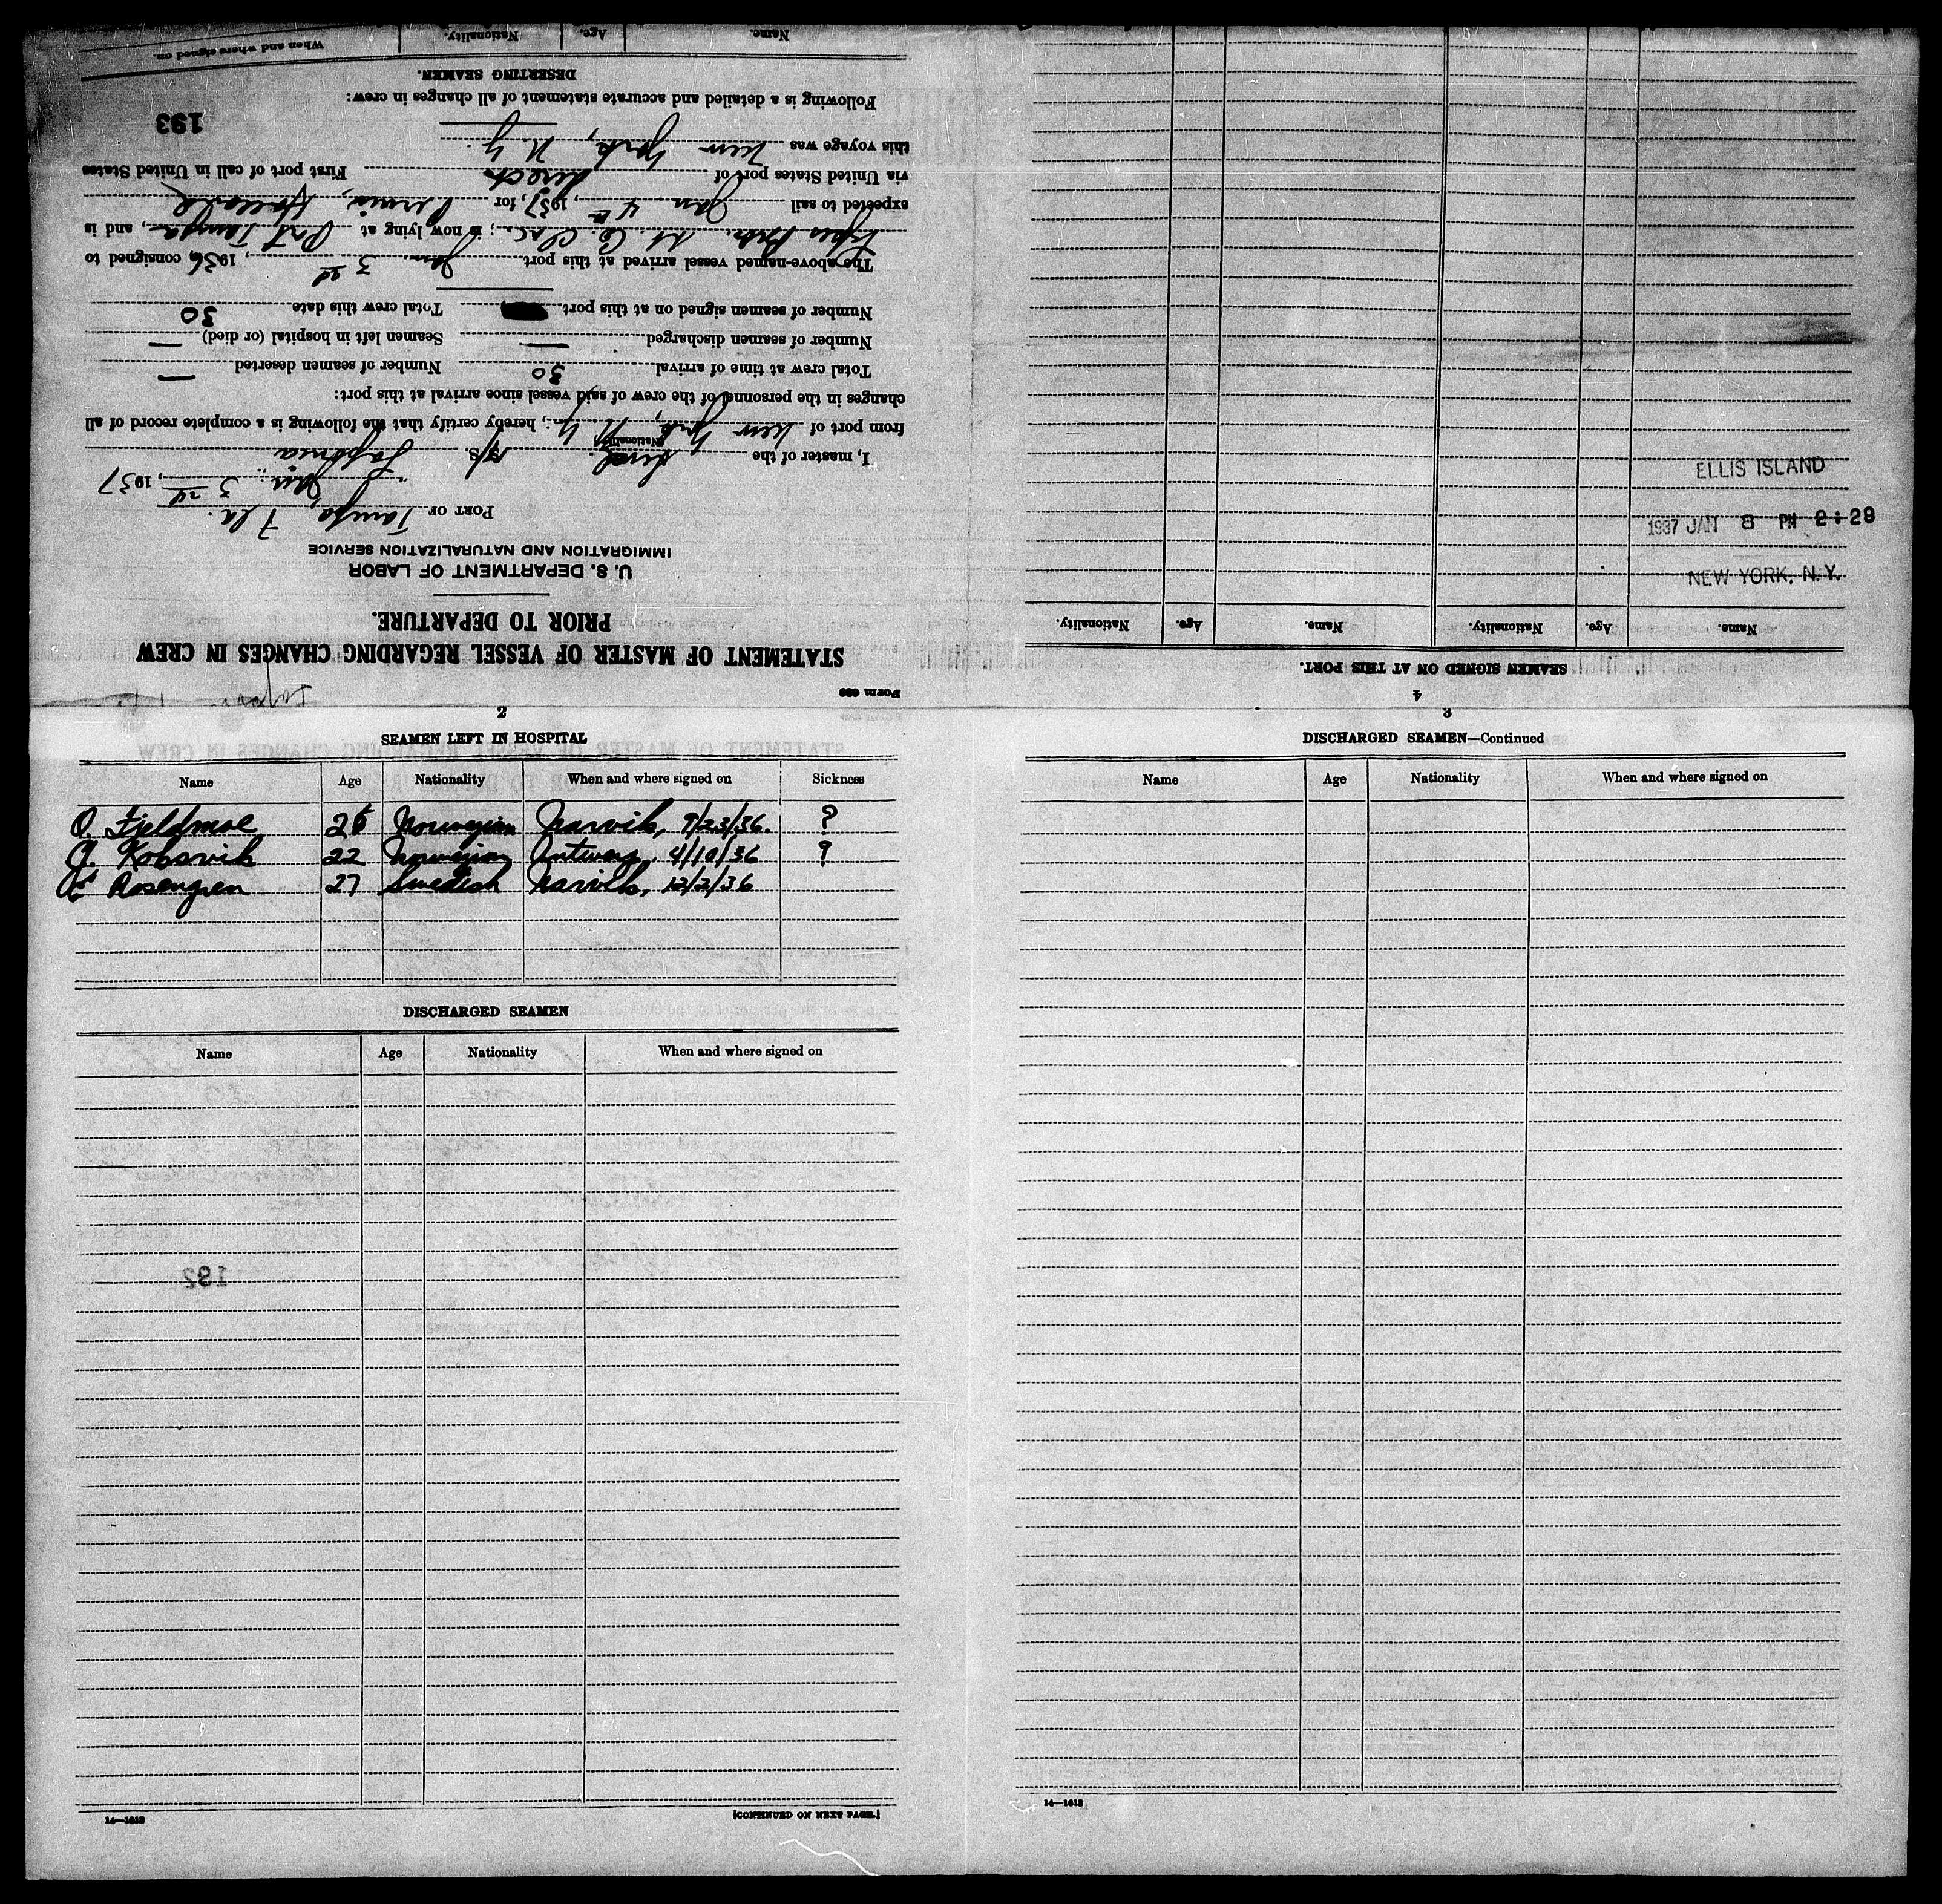 Form 689
STATEMENT OF MASTER OF VESSEL REGARDING CHANGES IN CREW
PRIOR TO DEPARTURE.
U. S. DEPARTMENT OF LABOR
IMMIGRATION AND NATURALIZATION SERVICE
PORT OF Tampa, Fla.
3rd, 1937
I, master of the Swed. M/S Laponia
Nationality
from port of New York, N. Y., hereby certify that the following is a complete record of all
changes in the personnel of the crew of said vessel since arrival at this port:
Total crew at time of arrival 30 Number of seamen deserted —
Number of seamen discharged — Seamen left in hospital (or died) —
Number of seamen signed on at this port Total crew this date 30
The above-named vessel arrived at this port Jan. 3rd, 1936, consigned to
Lykes Bros. St. Co. Inc.; is now lying at Port Tampa, and is
expected to sail Jan 4th, 1937, for Holland
via United States port of direct First port of call in United States
this voyage was New York, N. Y.
193
Following is a detailed and accurate statement of all changes in crew:
DESERTING SEAMEN.
Name. Age. Nationality. When and where signed on.
4
SEAMEN SIGNED ON AT THIS PORT.
Name. Age. Nationality. Name. Age. Nationality.
ELLIS ISLAND
1937 JAN 8 PM 2:29
NEW YORK, N.Y.
2
SEAMEN LEFT IN HOSPITAL
Name Age Nationality When and where signed on Sickness
O. Fjeldmoe 26 Norwegian Narvik, 9/23/36. ?
Kobsvik 22 Norwegian Antwerp, 4/10/36 ?
Rosengren 27 Swedish Narvik, 12/2/36
DISCHARGED SEAMEN
Name Age Nationality When and where signed on
192
14—1613
[CONTINUED ON NEXT PAGE.]
3
DISCHARGED SEAMEN—Continued
Name Age Nationality When and where signed on
14—1613